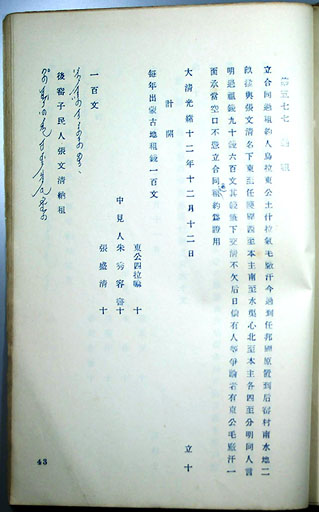 立合同過租約人烏拉東公土什拉氣毛敝汗今過到任邦原置到后窰村南水地二
畝後與張文清名下東至任隆興西至本主南至水渠心北至本主各四至分明同人言
明過租錢九十錢六百文其錢筆下交清不欠后日倘有人等爭論者有東公毛敝汗一
面承當空口不憑立合同租約爲證用
大清光緒十二年十二月十二日 立十
計開
每年出蒙古地租錢一百文
東公四拉嘛 十
中見人朱秀容 十
張盛清 十
一百文
後窰子民人張文清納租
43